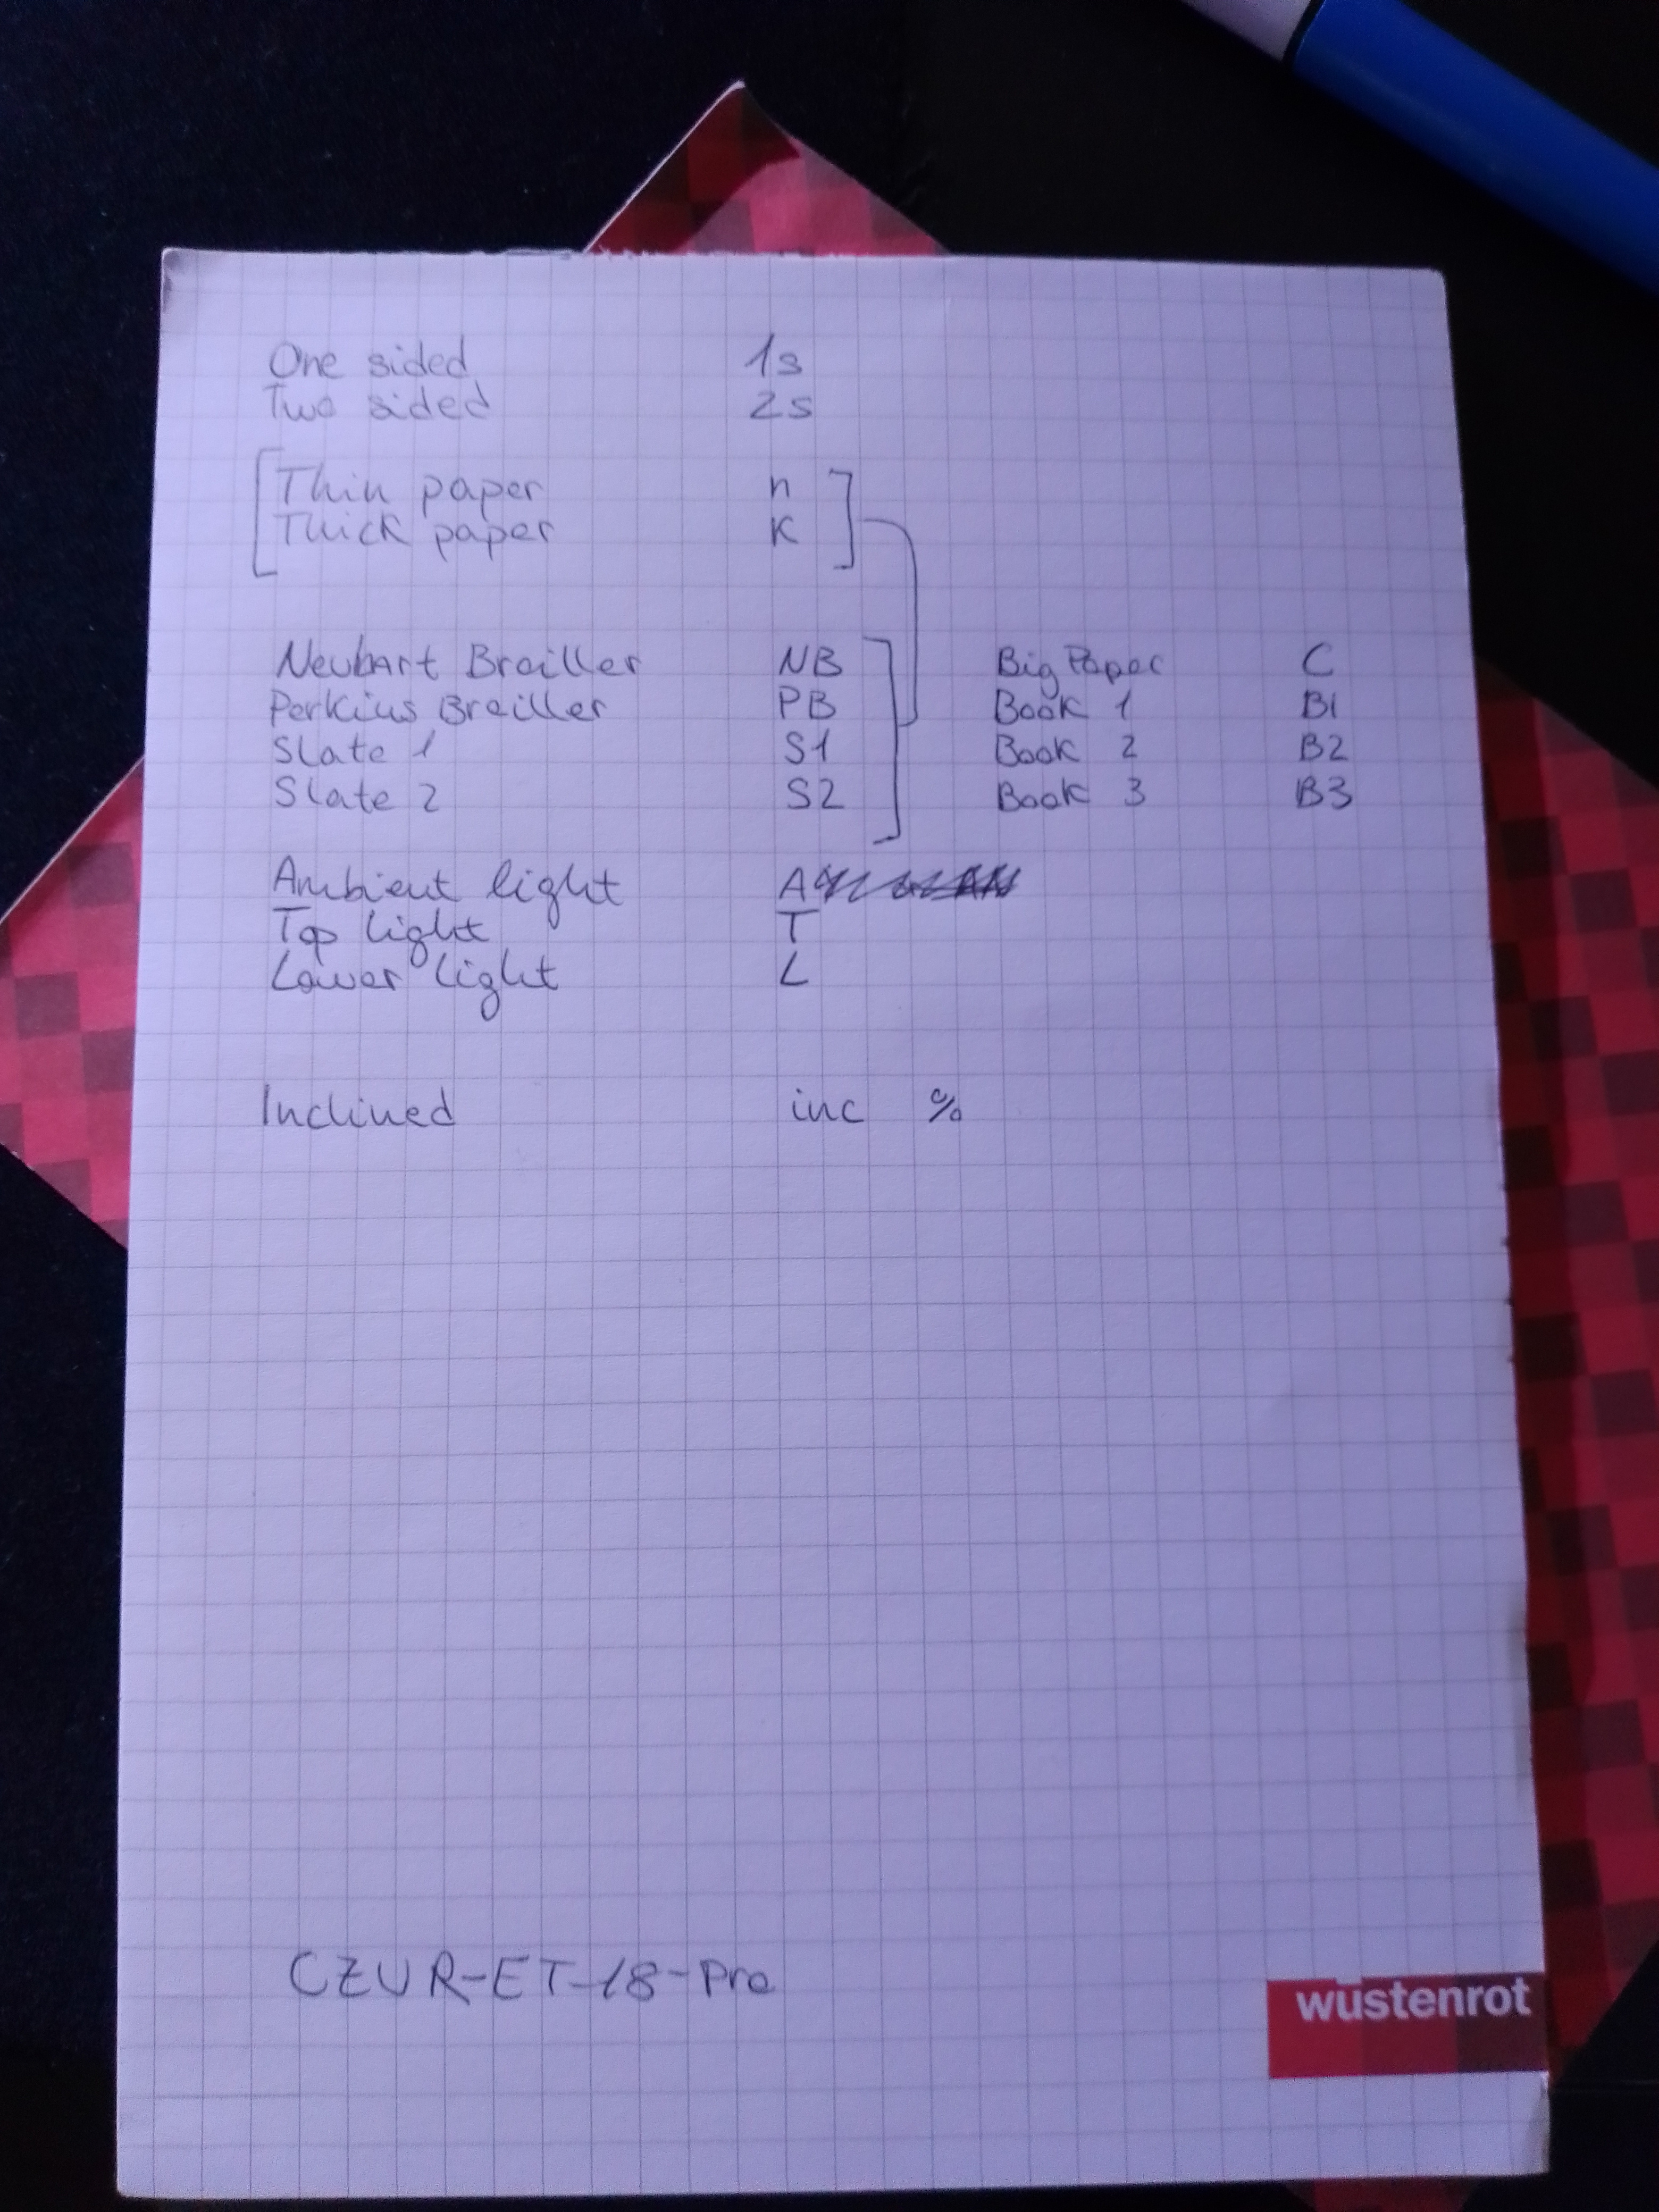 One sided 1s
Two sided 2s
Thin paper n
Thick paper K
Neubart Brailler NB Big Paper C
Perkins Brailler PB Book 1 B1
Slate 1 S1 Book 2 B2
Slate 2 S2 Book 3 B3
Ambient light A
Top light T
Lower light L
Inclined inc %
CZUR-ET-18-Pro
wüstenrot